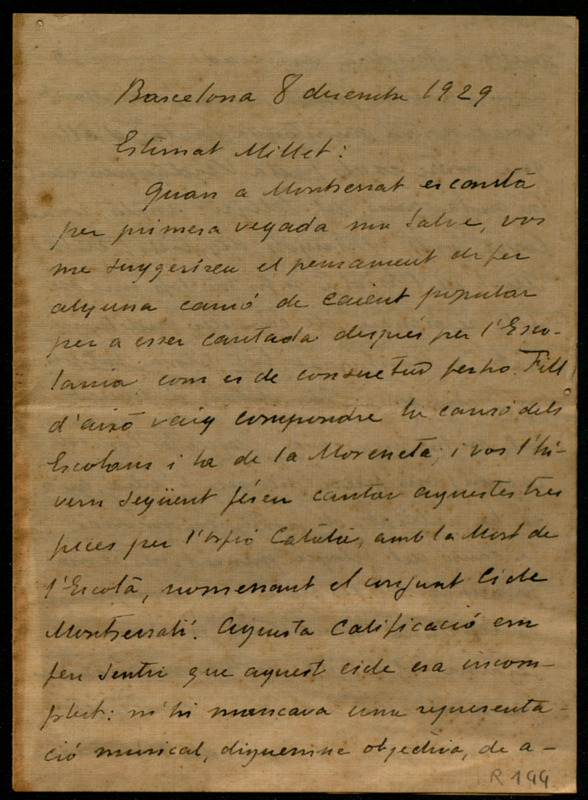 Barcelona 8 desembre 1929
Estimat Millet:
Quan a Montserrat es cantà
per primera vegada ma Salve, vos
me suggerireu el pensament de fer
alguna cançó de caient popular
per a esser cantada després per l'Esco-
lania com es de consuetud ferho. Fill
d'això vaig compondre la cançó dels
Escolans i la de la Moreneta; i vos l'hi-
vern següent féreu cantar aquestes tres
peces per l'Orfeó Català, amb la Mort de
l'Escolà, nomenant el conjunt Cicle
Montserratí. Aquesta calificació em
feu sentir que aquest cicle era incom-
plert: n'hi mancava una representa-
ció musical, diguemne objectiva, de a-
R 144